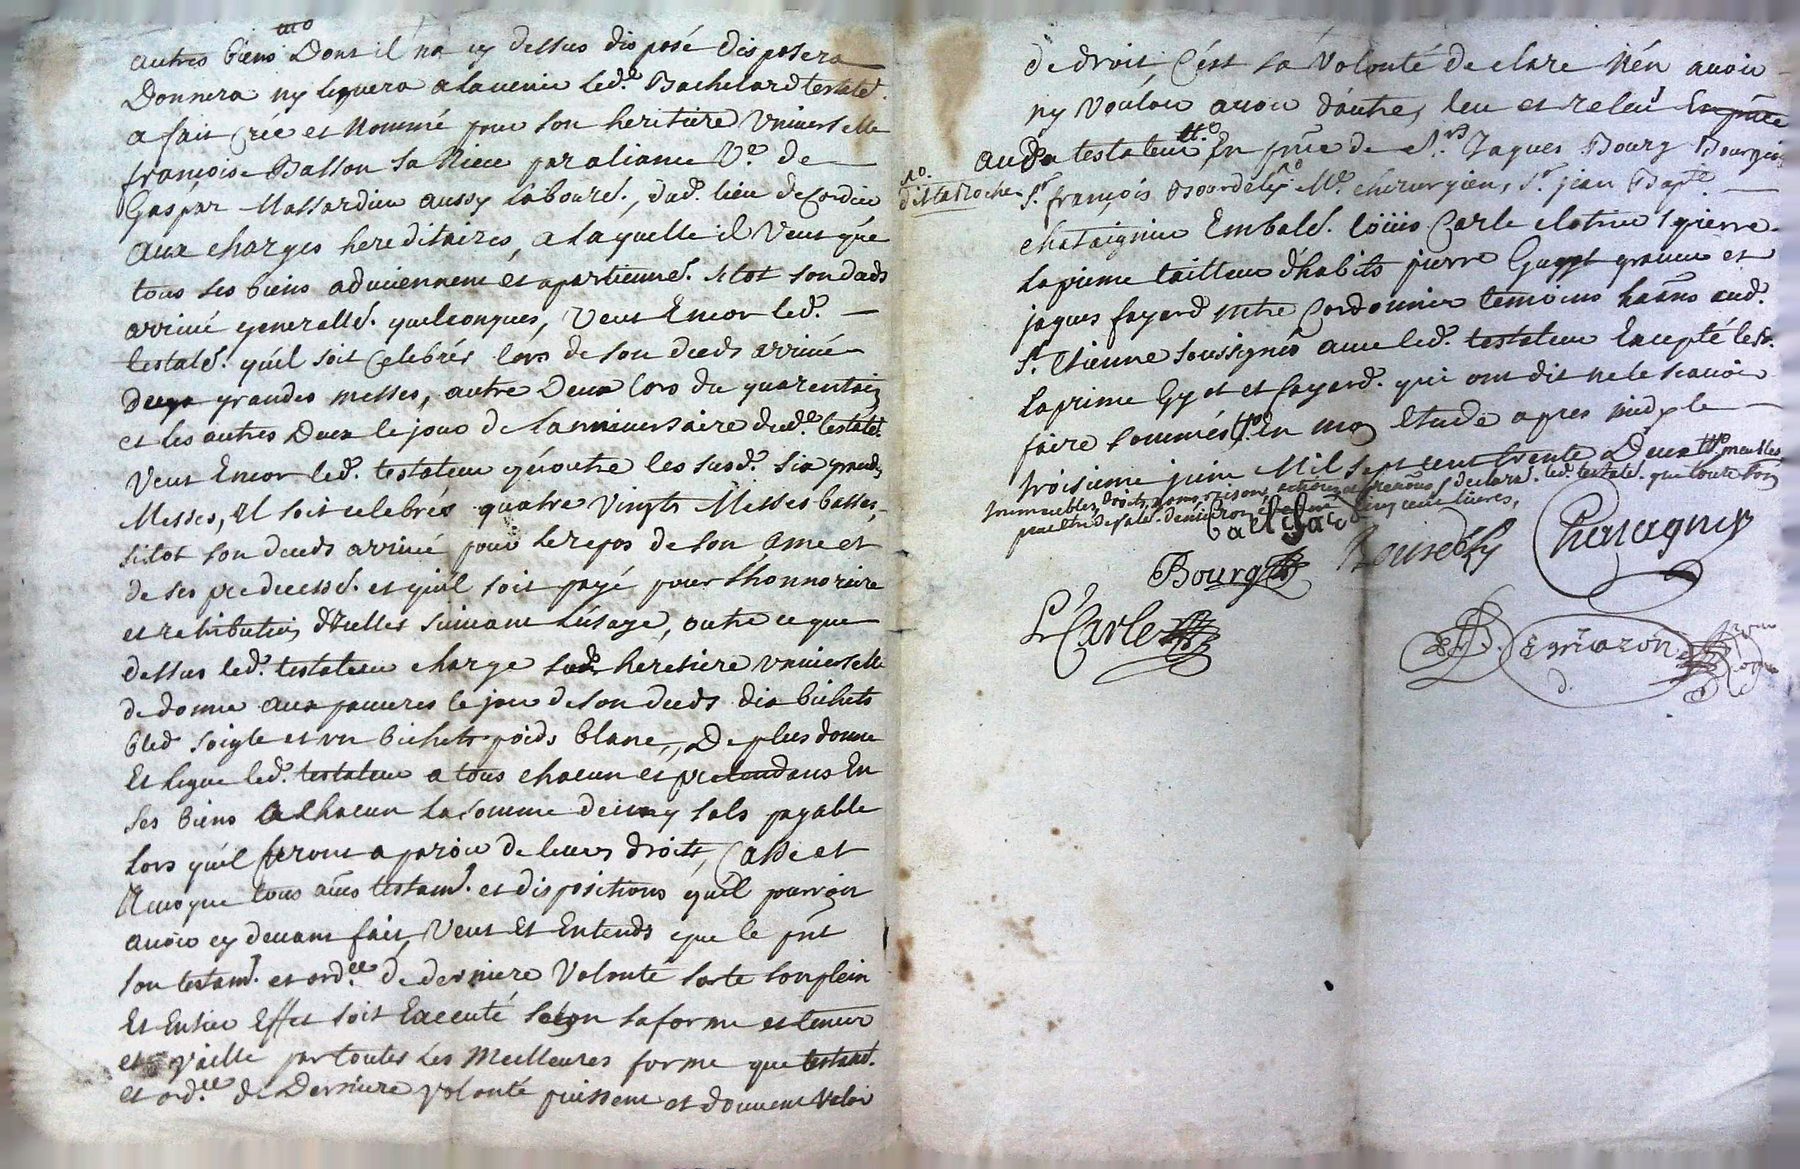 autres biens Dont il n'a cy dessus disposé disposera
Donnera ny leguera a lavenir led.t Bachelard testat.r
a fait créé et Nommé pour son heritiere Universelle
françoise Basson sa Niece par aliance V.e de
Gaspar Massardier aussy labour.r, dud. lieu de
aux charges hereditaires, a laquelle il Veut que
tous ses biens adviennent et apartienne.t sitot son deceds
arrivé generalle.t quelconques, Veut Encor led.t
testat.r qu'il soit Celebrés lors de son deceds arrivé
deux grandes messes, autre Deux lors du quarentain
et les autres Deux le jour de Lanniversaire dud.t testat.r
Veut Encor led.t testateur qu'outre les susd.t six grandes
Messes, Il soit celebrés quatre Vingts Messes basses,
sitot son deceds arrivé pour le repos de son ame et
de ses predecess.rs et qu'il soit payé pour Lhonnoraire
et retribution d'Icelles suivant L'usage, outre ce que
dessus led.t testateur charge sad. heretiere Universelle
de donner aux pauvres le jour de son deceds dix bichets
bled soigle et un bichet poids blanc, De plus donne
Et Legue led.t testateur a tous chacun et pretendans En
ses biens a chacun la somme de cinq sols payable
Lors qu'il feront aparoir de leurs droits, Casse et
Revoque tous aues testam.t et dispositions qu'il pourroit
avoir cy devant fait, Veut Et Entends que le pnt
son testam.t et ord.ce de derniere Volonté sorte son plein
Et Entier Effet soit Executé selon sa forme et teneur
et Vaille par toutes les Meilleures forme que testam.t
et ord.ce de Derniere Volonté puissent et doivent Valoir
de droit, C'est sa Volonté declare N'en avoir
ny Vouloir avoir d'autre, leu et releu En pnce
aud. testateur En pnce de S.rs Jaques Bourg Bourgeois
S.r françois Bourdely M.e chirurgien, S.r jean Bap.te
dit La Roche
chataignier Embal.r Loüis Carle clotrier, pierre
Laprime tailleur d'habits pierre Guyot graveur et
jaques fayard mtre Cordonnier temoins haans aud.
S.t Etienne soussignés avec led.t testateur Excepté lesd.
Laprime Gyot et fayard. qui ont dit ne le scavoir
faire sommés, En mon Etude apres midy le
troisieme juin Mil sept cent trente Deux, meubles
Immeubles, droits, noms, raisons, actions et pretentions, declare led.t testat.r que toute son
Bourg
Chatagnier
L Carle